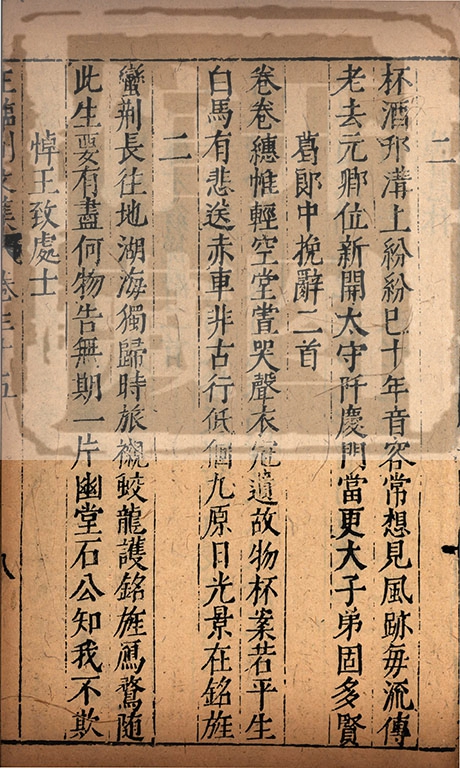 二
杯酒邗溝上紛紛巳十年音容常想見風跡每流傳
老去元卿位新開太守阡慶門當更大子弟固多賢
葛郎中挽辭二首
卷卷繐帷輕空堂嘗哭聲衣冠遺故物杯案若平生
白馬有悲送赤車非古行低佪九原日光景在銘旌
二
蠻荆長往地湖海獨歸時旅櫬蛟龍護銘旌鴈鶩隨
此生要有盡何物告無期一片幽堂石公知我不欺
悼王致處士
王臨川文集 卷三十五 八